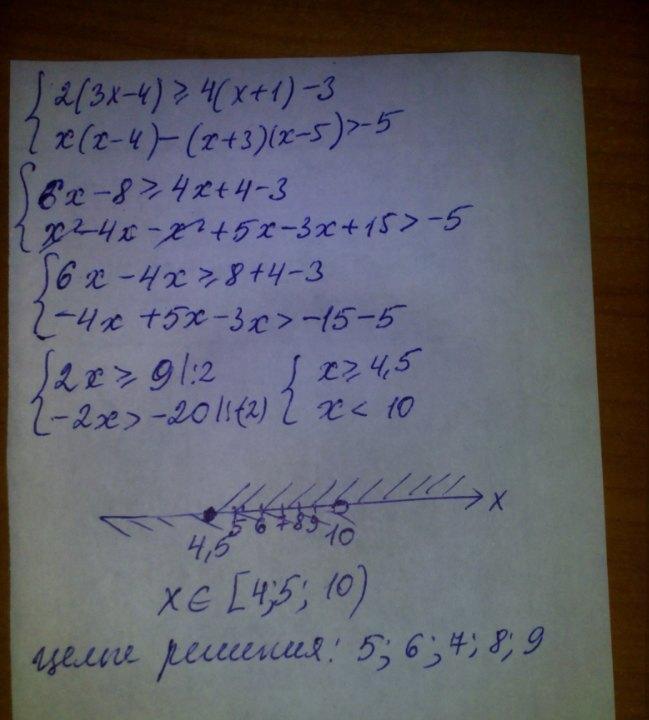 2(3x-4) ≥ 4(x+1)-3
x(x-4)-(x+3)(x-5)>-5
6x-8 ≥ 4x+4-3
x²-4x-x²+5x-3x+15>-5
6x-4x ≥ 8+4-3
-4x+5x-3x>-15-5
2x ≥ 9 |:2 x ≥ 4,5
-2x>-20 |:(-2) x < 10
x
4,5 5 6 7 8 9 10
x ∈ [4;5; 10)
целые решения: 5; 6; 7; 8; 9